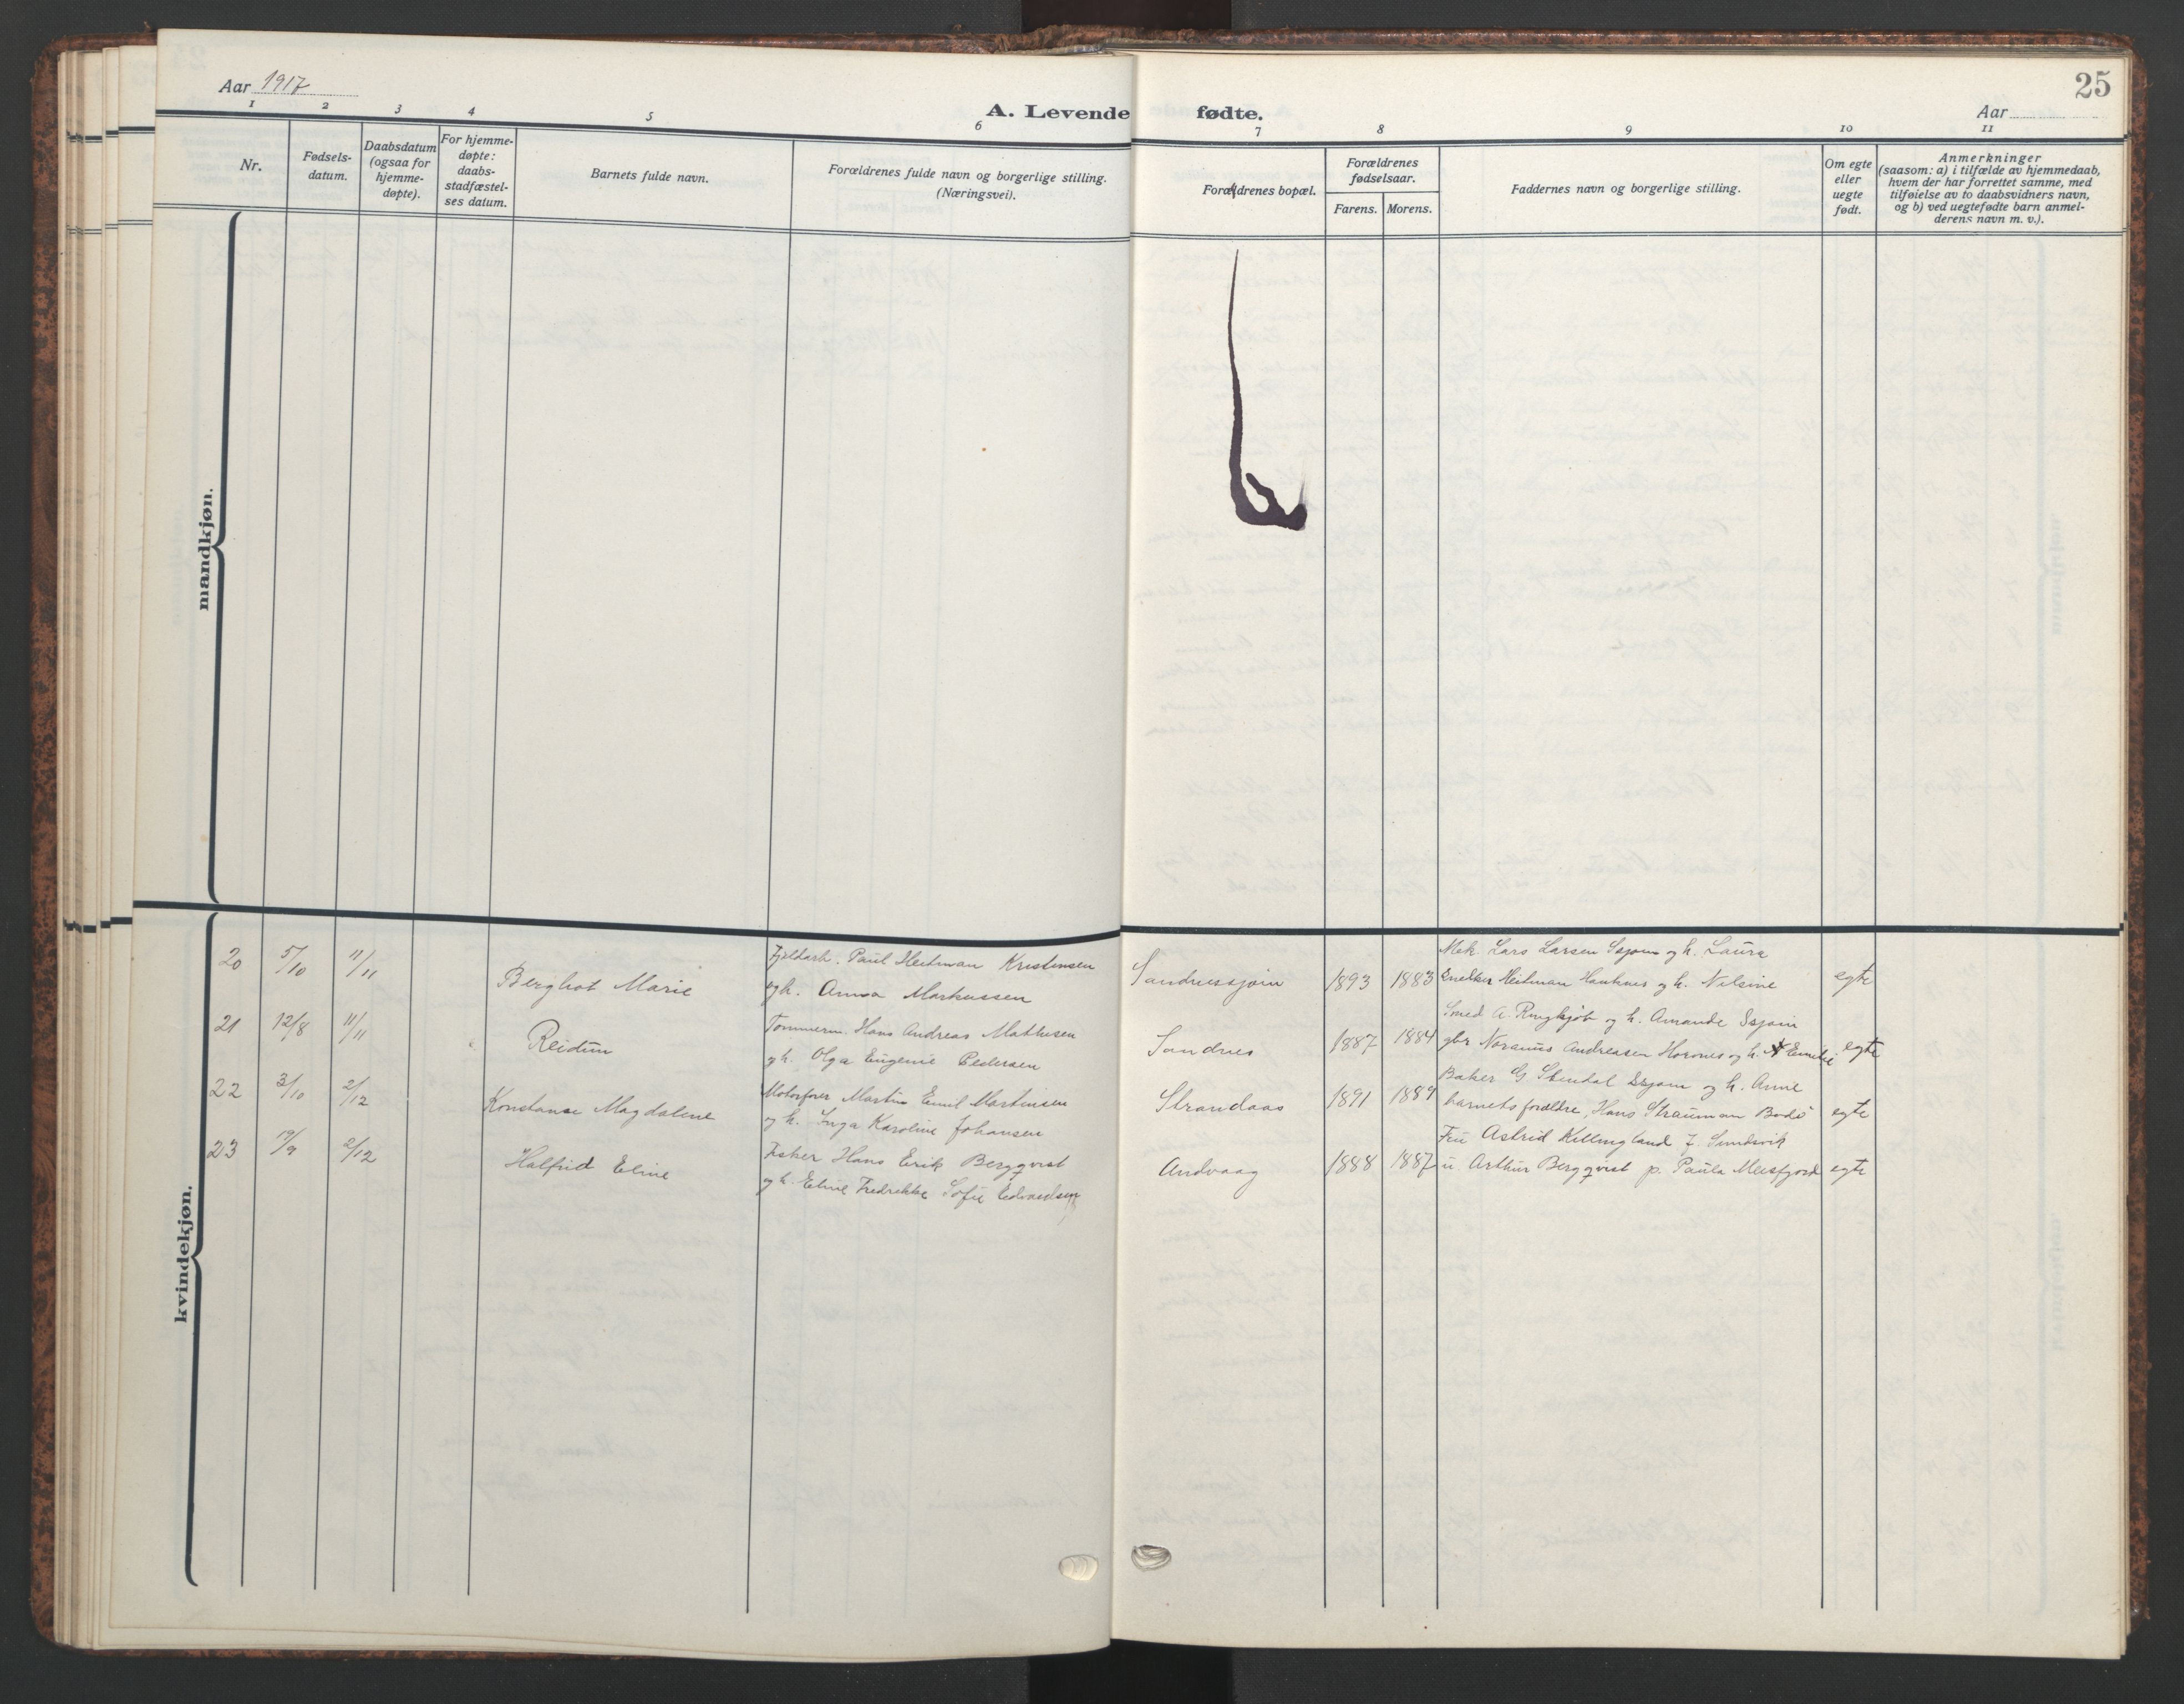 Aar 1917
A. Levende fødte.
25
Aar
1 2 3 4 5 6 7 8 9 10 11
Nr.
Fødsels-
datum.
Daabsdatum
(ogsaa for
hjemme-
døpte).
For hjemme-
døpte:
daabs-
stadfæstel-
ses datum.
Barnets fulde navn.
Forældrenes fulde navn og borgerlige stilling.
(Næringsvei).
Forældrenes bopæl.
Forældrenes
fødselsaar.
Farens. Morens.
Faddernes navn og borgerlige stilling.
Om egte
eller
uegte
født.
Anmerkninger
(saasom: a) i tilfælde av hjemmedaab,
hvem der har forrettet samme, med
tilføielse av to daabsvidners navn,
og b) ved uegtefødte barn anmel-
derens navn m. v.).
mandkjøn.
kvindekjøn.
20 5/10 11/11 Bergliot Marie
Fjeldarb. Paul Heitman Kristensen
og h. Anna Markussen
Sandnessjøen 1893 1883
Mek. Lars Larsen Ssjøen og h. Laura
Snedker Heitman Hauknes og h. Nilsine
egte
21 12/8 11/11 Reidun
Tømmerm. Hans Andreas Mathisen
og h. Olga Eugenie Pedersen
Sandnes 1887 1884
Smed A. Ringkjøb og h. Amanda Ssjøen
gbr Noranus Andreasen Horvnes og h. Emilie
egte
22 3/10 2/12 Konstanse Magdalene
Motorfører Martin Emil Martinsen
og h. Inga Karoline Johansen
Strandaas 1891 1889
Baker G. Stendal Ssjøen og h. Anne
barnets forældre, Hans Strauman Bodø
egte
23 19/9 2/12 Halfrid Eline
Fisker Hans Erik Bergqvist
og h. Eline Fredrikke Sofie Edvardsen
Andvaag 1888 1887
Fru Astrid Killingland f. Sundsvik
u. Arthur Bergqvist p. Paula Meisfjord
egte